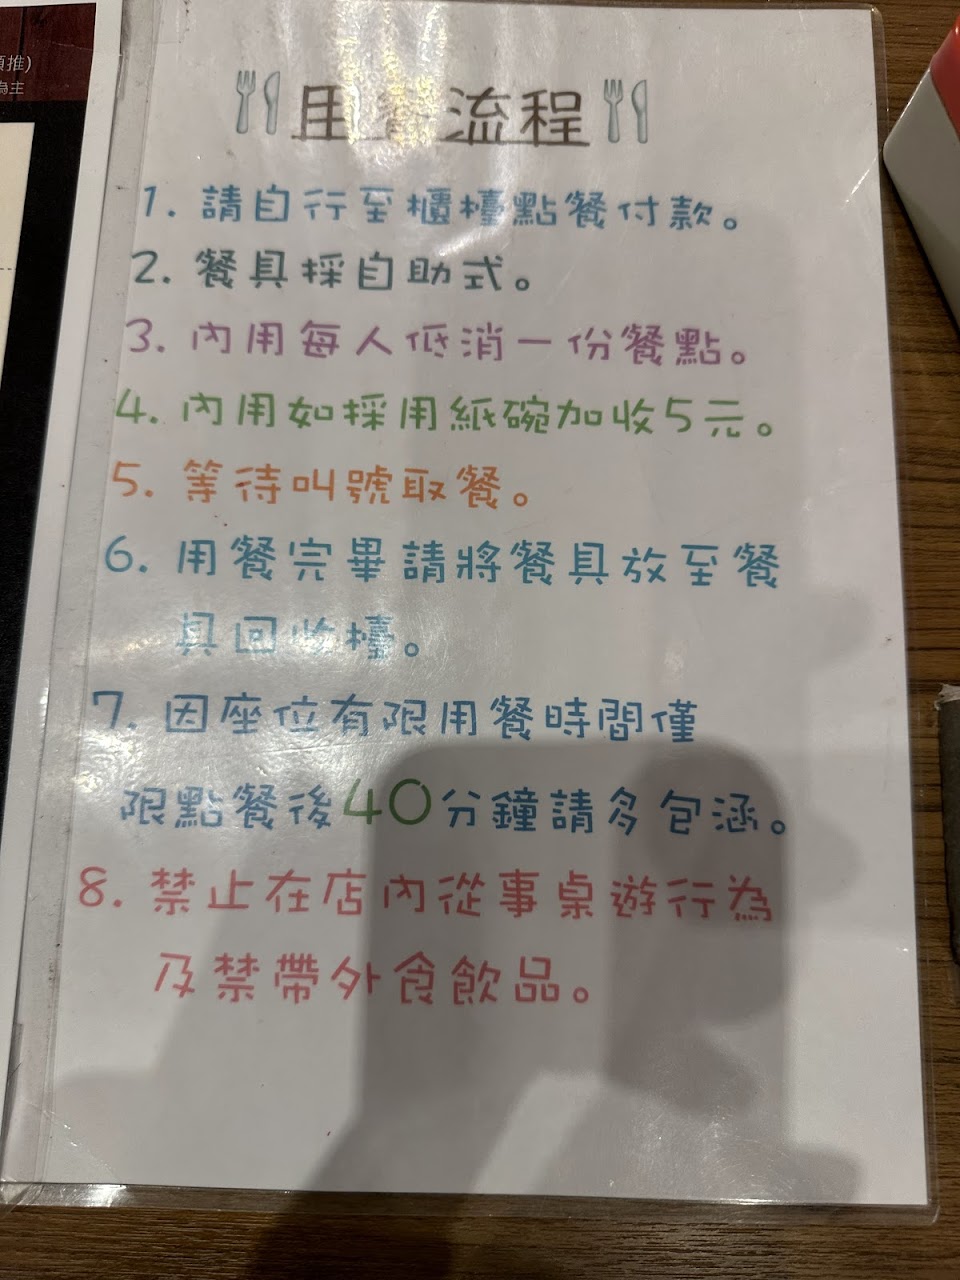 推)
為主
用餐流程
1. 請自行至櫃檯點餐付款。
2. 餐具採自助式。
3. 內用每人低消一份餐點。
4. 內用如採用紙碗加收5元。
5. 等待叫號取餐。
6. 用餐完畢請將餐具放至餐
具回收檯。
7. 因座位有限用餐時間僅
限點餐後40分鐘請多包涵。
8. 禁止在店內從事桌遊行為
及禁帶外食飲品。